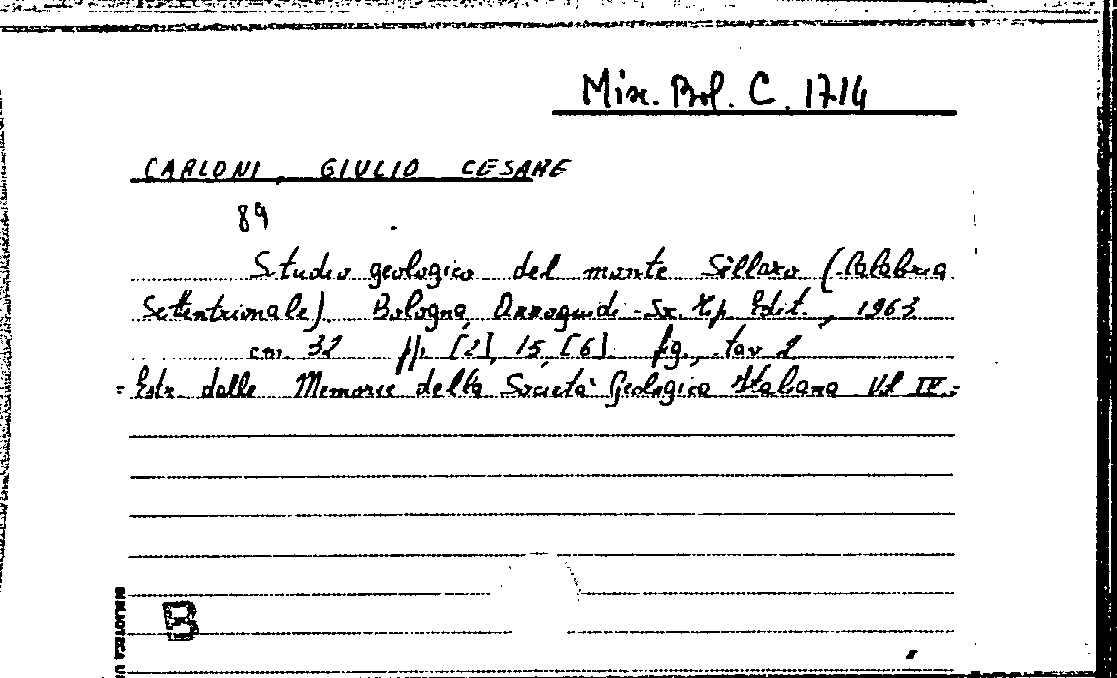 Misc. Bol. C. 1714
CARLONI, GIULIO CESARE
89
Studio geologico del monte Sillaro (Calabria
Settentrionale). Bologna, Arzoguidi - Sx. Tip. Edit., 1963
cm. 32 pp. [2], 15, [6]. fig., tav. 2
= Estr. dalle Memorie della Società Geologica Italiana Vol IV. =
B
BIBLIOTECA